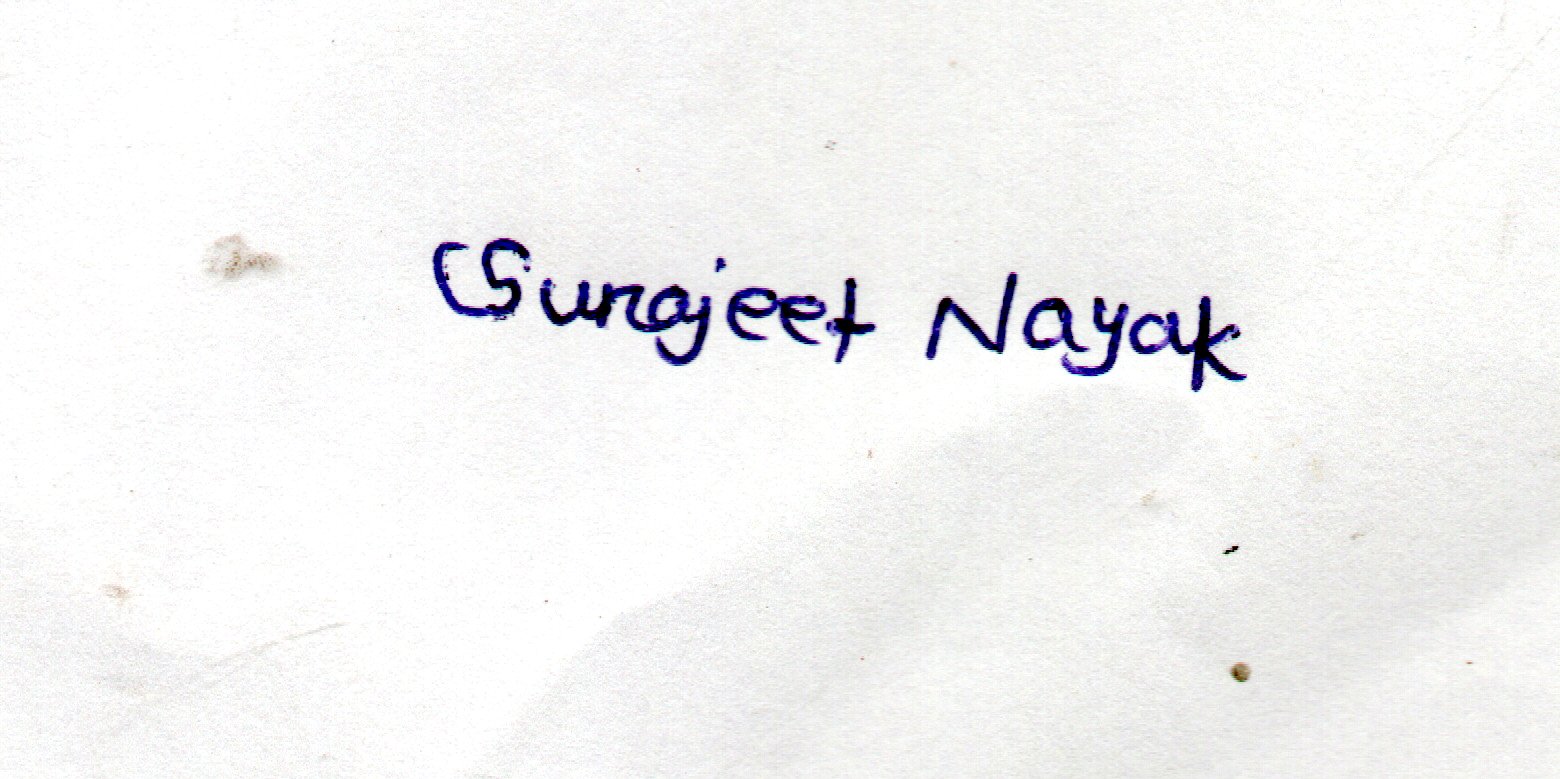 Surajeet Nayak